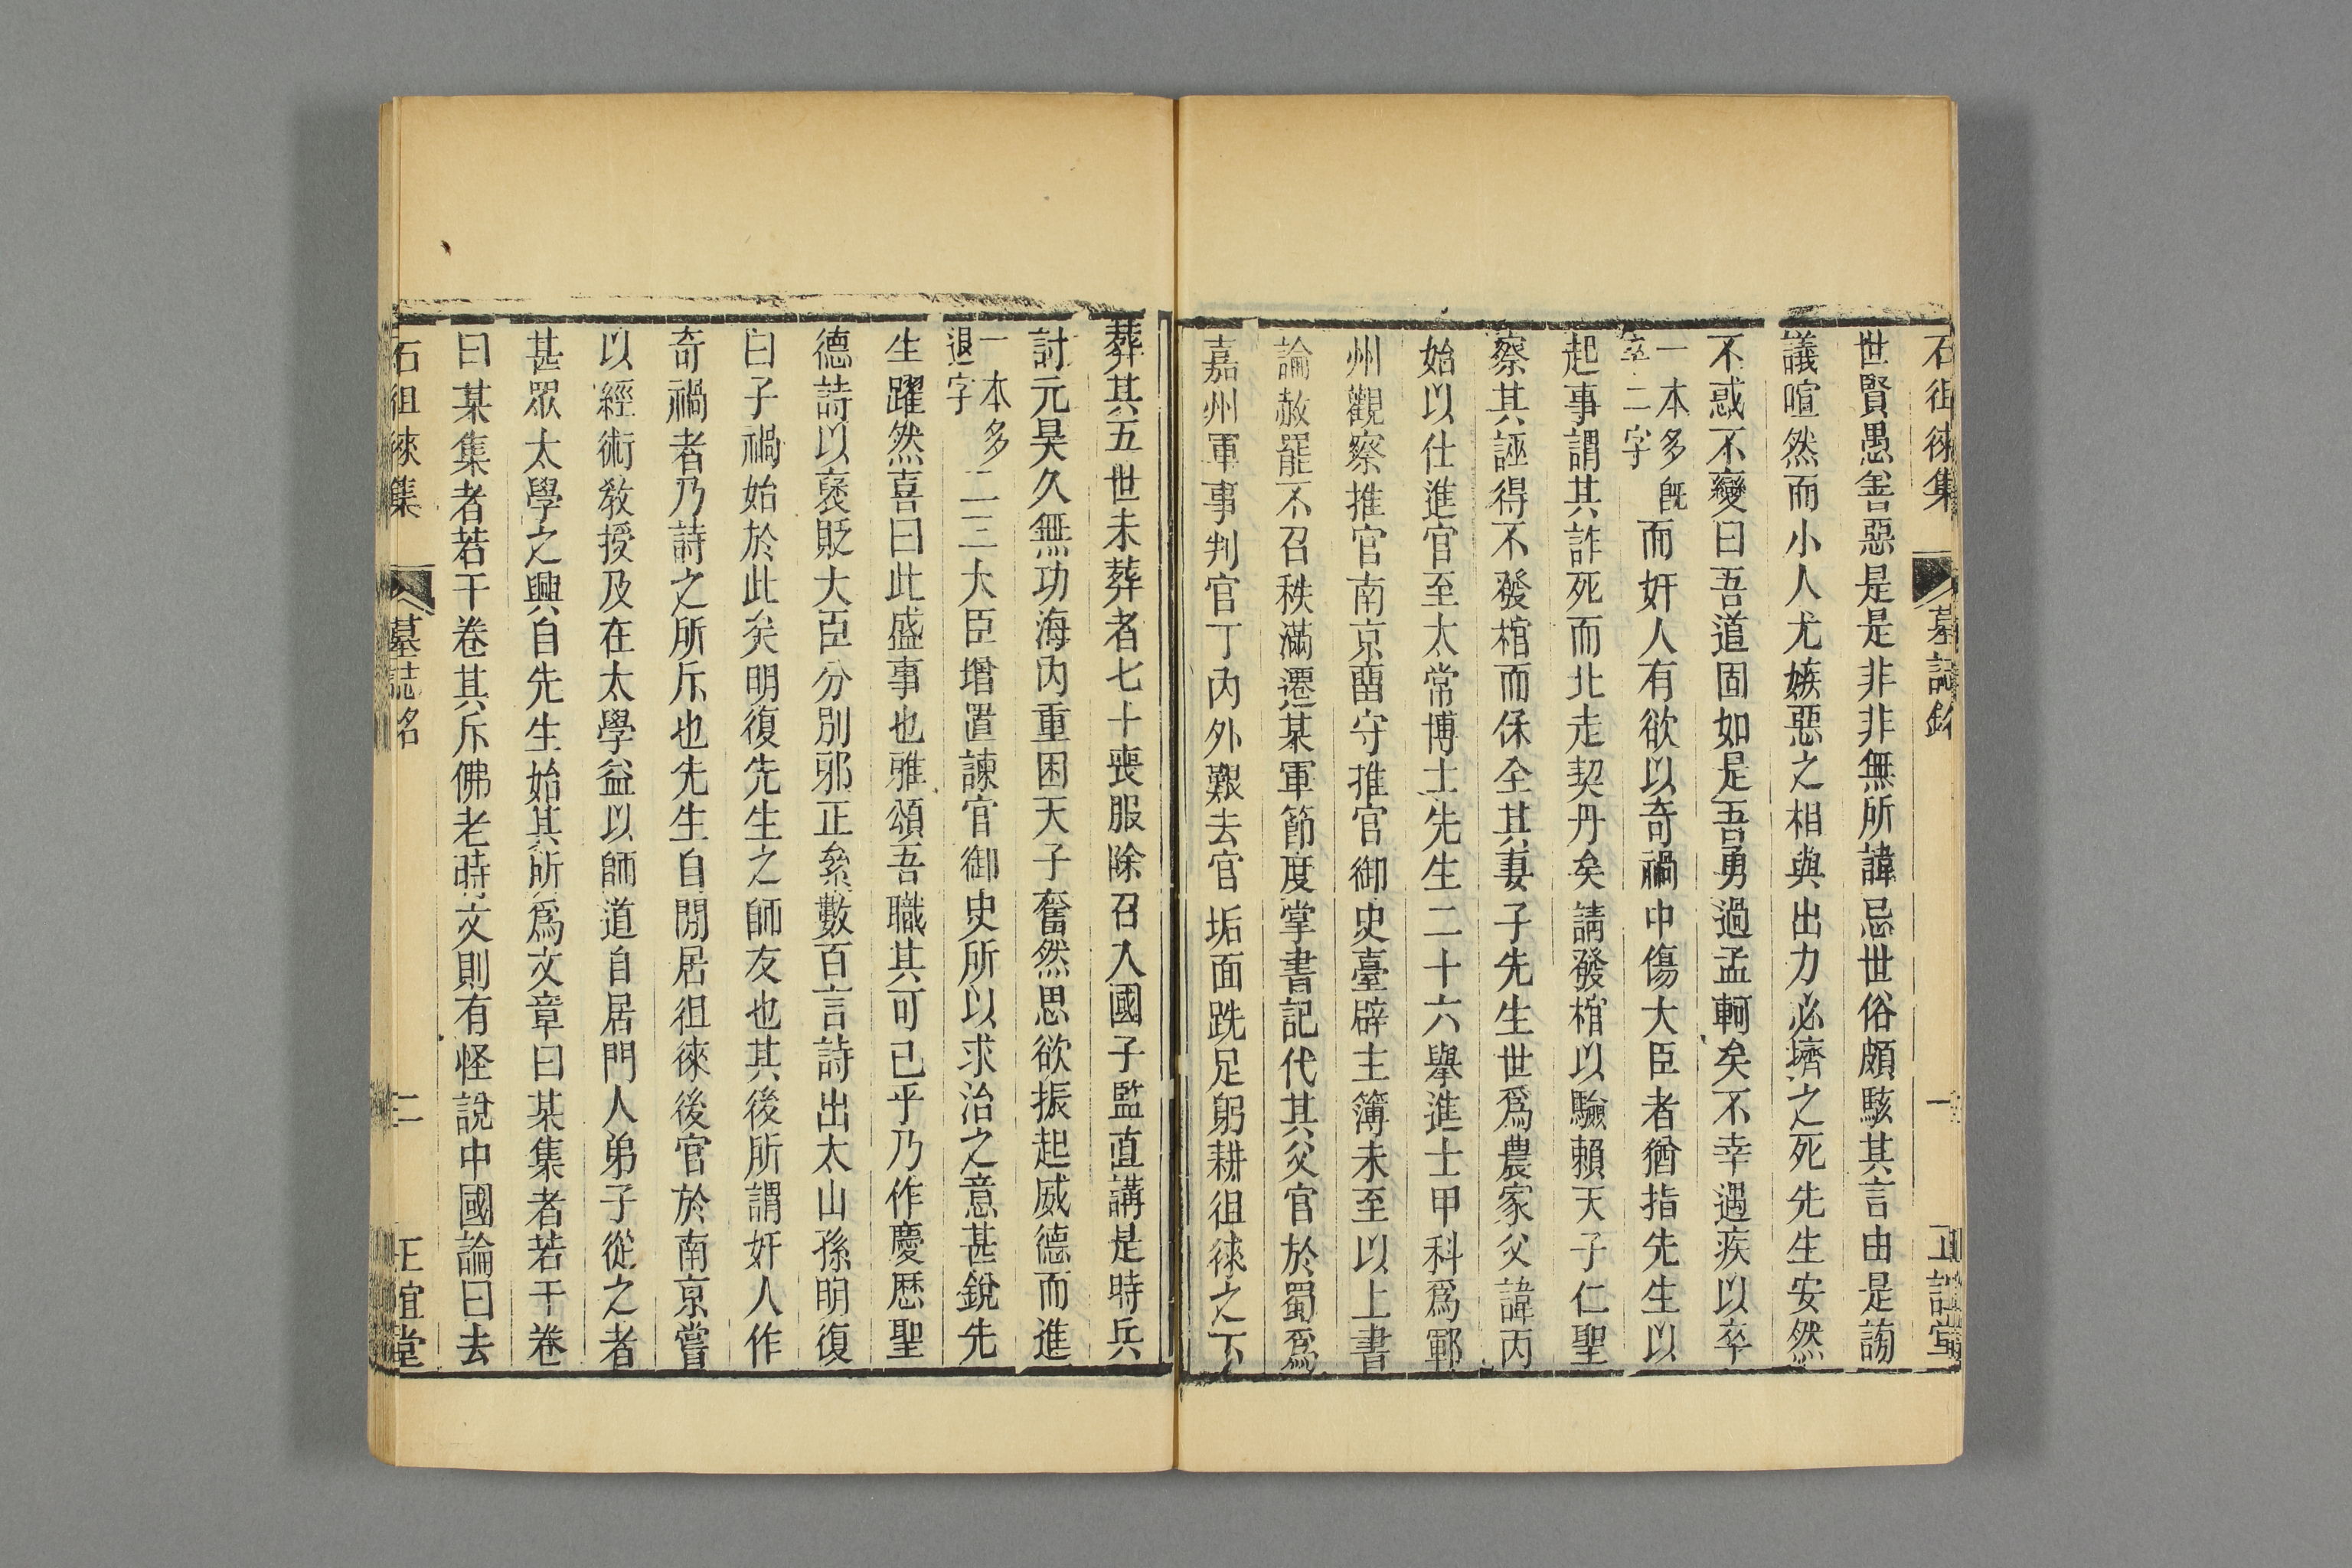 石徂徠集 墓誌銘 一 正誼堂
世賢愚善惡是是非非無所諱忌世俗頗駭其言由是謗
議喧然而小人尤嫉惡之相與出力必擠之死先生安然
不惑不變曰吾道固如是吾勇過孟軻矣不幸遇疾以卒
一本多既
卒二字
而奸人有欲以奇禍中傷大臣者猶指先生以
起事謂其詐死而北走契丹矣請發棺以驗賴天子仁聖
察其誣得不發棺而保全其妻子先生世爲農家父諱丙
始以仕進官至太常博士先生二十六舉進士甲科爲鄆
州觀察推官南京畱守推官御史臺辟主簿未至以上書
論赦罷不召秩滿遷某軍節度掌書記代其父官於蜀爲
嘉州軍事判官丁內外艱去官垢面跣足躬耕徂徠之下
葬其五世未葬者七十喪服除召入國子監直講是時兵
討元昊久無功海內重困天子奮然思欲振起威德而進
一本多
退字
二三大臣增置諫官御史所以求治之意甚銳先
生躍然喜曰此盛事也雅頌吾職其可已乎乃作慶曆聖
德詩以褒貶大臣分別邪正絫數百言詩出太山孫明復
曰子禍始於此矣明復先生之師友也其後所謂奸人作
奇禍者乃詩之所斥也先生自閒居徂徠後官於南京嘗
以經術敎授及在太學益以師道自居門人弟子從之者
甚眾太學之興自先生始其所爲文章曰某集者若干卷
曰某集者若干卷其斥佛老時文則有怪說中國論曰去
石徂徠集 墓誌銘 二 正誼堂